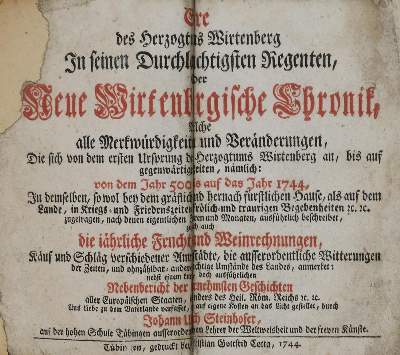 Ere
des Herzogtus Wirtenberg
In seinen Durchlachtigsten Regenten,
der
Neue Wirtenbrgische Chronik,
alle Merkwürdigkein und Veränderungen,
Die sich von dem ersten Ursprung Herzogtums Wirtenberg an, bis auf
gegenwärtigeiten, nämlich:
von dem Jahr 500 is auf das Jahr 1744,
In demselben, so wol bey dem gräflich hernach fürstlichen Hause, als auf dem
Lande, in Kriegs- und Friedenszeiten frölich- und traurigen Begebenheiten ꝛc. ꝛc.
zugetragen, nach denen eigentlichen und Monaten, ausführlich beschreibet,
auch
die jährliche Frucht und Weinrechnungen,
Käuf und Schläg verschiedener städte, die ausserordentliche Witterungen
der Zeiten, und ohnzählbar- andere Umstände des Landes, anmerket:
nebst einem kurz doch ausführlichen
Nebenbericht der nehmsten Geschichten
aller Europäischen Staaten, anders des Heil. Röm. Reichs ꝛc. ꝛc.
dem Vaterlande verfasset, auf eigene Kosten an das Licht gestellet, durch
Johann Ulch Steinhofer,
auf der hohen Schule Tübingen ausserordenen Lehrer der Weltweisheit und der freyen Künste.
Tübingen, gedruckt bey istian Gottfrid Cotta, 1744.